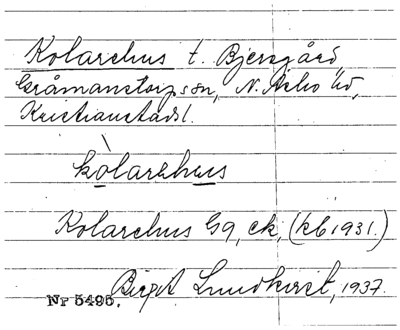 Kolarehus t. Bjersgård,
Gråmanstorps sn, N. Åsbo hd,
Kristianstads l.
kòlarehus
Kolarehus Gg, ek, (kb 1931.)
Birgit Lundkvist, 1937.
Nr 5495.